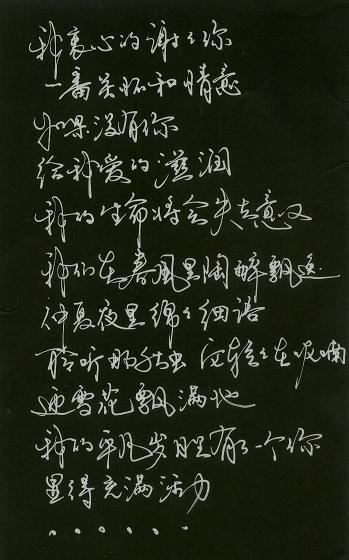 我衷心的谢谢你
一番关怀和情意
如果没有你
给我爱的滋润
我的生命将会失去意义
我们在春风里陶醉飘逸
仲夏夜里绵绵细语
聆听那秋虫 它轻轻在呢喃
迎雪花飘满地
我的平凡岁月里有了一个你
显得充满活力
......